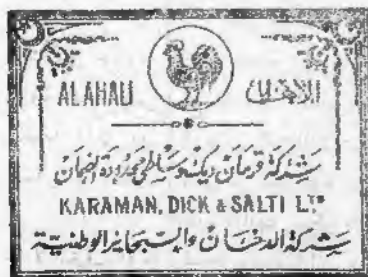 ALAHALI الأهلي
شركة قرمان ديك وسلطي محدودة الضمان
KARAMAN, DICK & SALTI LTD
شركة الدخان والسجاير الوطنية